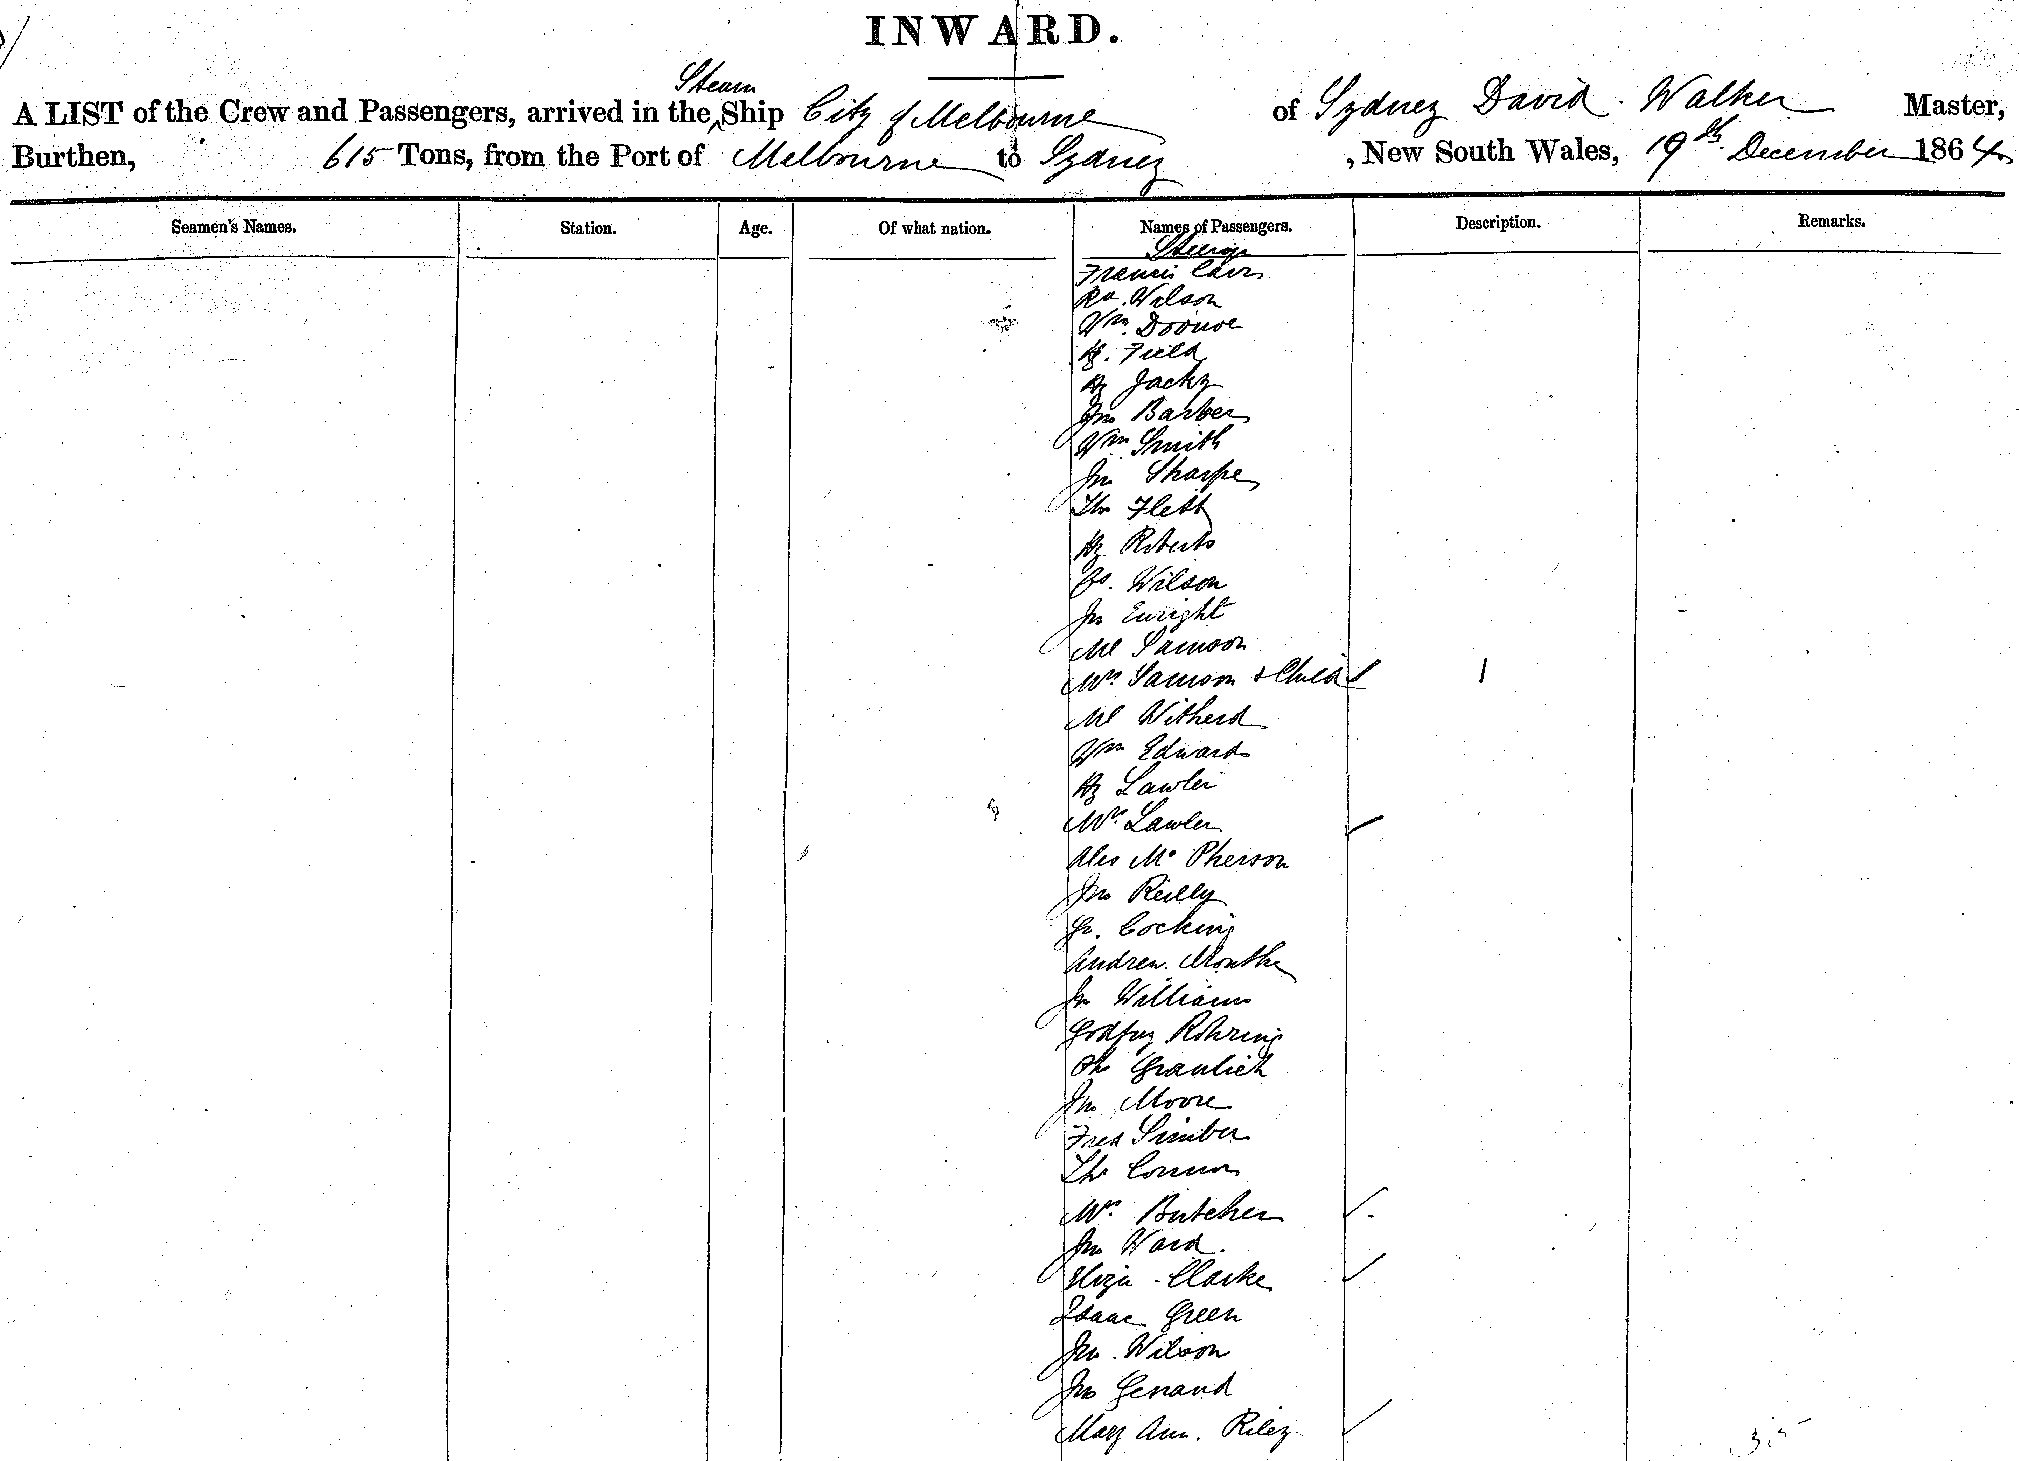 INWARD.
Steam
A LIST of the Crew and Passengers, arrived in the Ship City of Melbourne of Sydney David Walker Master,
Burthen, 615 Tons, from the Port of Melbourne to Sydney, New South Wales, 19th December 1864
Seamen's Names. Station. Age. Of what nation. Names of Passengers. Description. Remarks.
Steerage
Francis
Wilson
Wm.
Hy. Field
Hy Jacky
Jno Barber
Wm Smith
Jno Sharpe
Tho Flett
Hy Roberts
Wilson
Jno Enright
Mr Samson
Mrs Samson & Child 1
Mr Witherd
Wm Edwards
Hy Lawler
Mrs Lawler
Alex Mc Pherson
Jno Reilly
Cocking
Andrew
Jno Williams
Godfrey Rohring
Graulich
Jno Moore
Fred Simber
Tho Connor
Mrs Butcher
Jno Ward.
Eliza Clarke
Isaac Green
Jno. Wilson
Jno Gerrard
Mary Ann. Riley